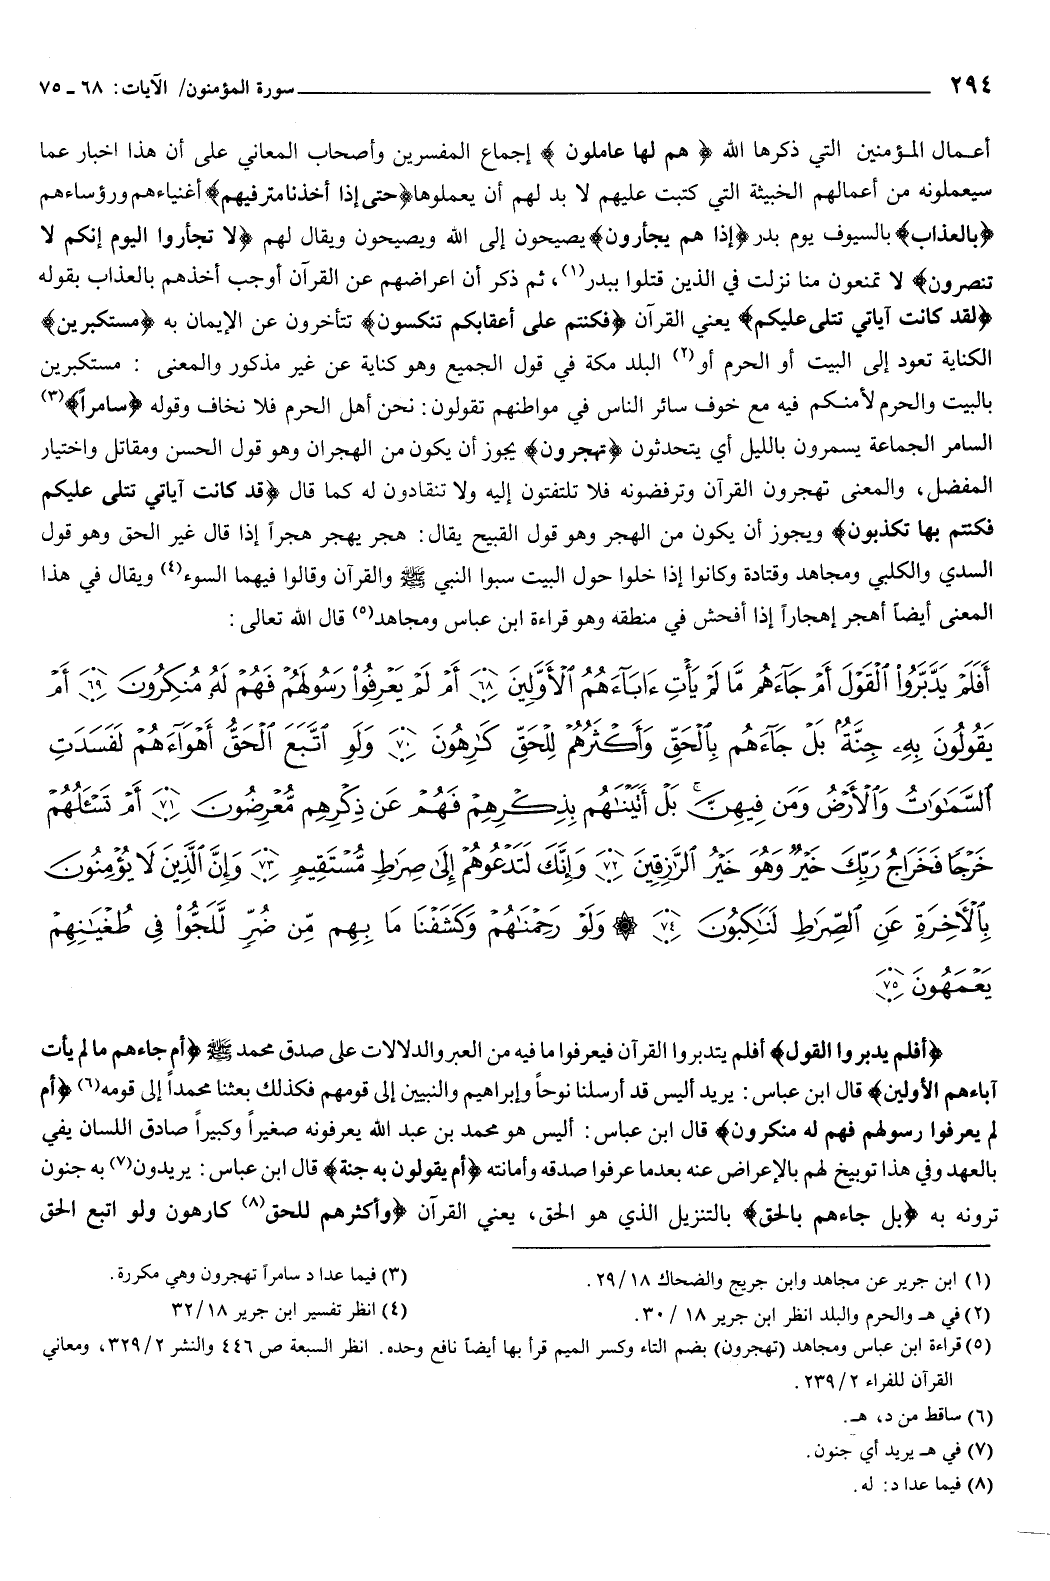 ٢٩٤ سورة المؤمنون/ الآيات: ٦٨ ـ ٧٥
أعمال المؤمنين التي ذكرها الله ﴿ هم لها عاملون ﴾ إجماع المفسرين وأصحاب المعاني على أن هذا اخبار عما
سيعملونه من أعمالهم الخبيثة التي كتبت عليهم لا بد لهم أن يعملوها﴿حتى إذا أخذنا مترفيهم﴾أغنياءهم ورؤساءهم
﴿بالعذاب﴾ بالسيوف يوم بدر﴿إذا هم يجأرون﴾يصيحون إلى الله ويصيحون ويقال لهم ﴿لا تجأروا اليوم إنكم لا
تنصرون﴾ لا تمنعون منا نزلت في الذين قتلوا ببدر(١)، ثم ذكر أن اعراضهم عن القرآن أوجب أخذهم بالعذاب بقوله
﴿لقد كانت آياتي تتلى عليكم﴾ يعني القرآن ﴿فكنتم على أعقابكم تنكسون﴾ تتأخرون عن الإيمان به ﴿مستكبرين﴾
الكناية تعود إلى البيت أو الحرم أو(٢) البلد مكة في قول الجميع وهو كناية عن غير مذكور والمعنى : مستكبرين
بالبيت والحرم لأمنكم فيه مع خوف سائر الناس في مواطنهم تقولون: نحن أهل الحرم فلا نخاف وقوله ﴿سامراً﴾(٣)
السامر الجماعة يسمرون بالليل أي يتحدثون ﴿تهجرون﴾ يجوز أن يكون من الهجران وهو قول الحسن ومقاتل واختيار
المفضل، والمعنى تهجرون القرآن وترفضونه فلا تلتفتون إليه ولا تنقادون له كما قال ﴿قد كانت آياتي تتلى عليكم
فكنتم بها تكذبون﴾ ويجوز أن يكون من الهجر وهو قول القبيح يقال: هجر يهجر هجراً إذا قال غير الحق وهو قول
السدي والكلبي ومجاهد وقتادة وكانوا إذا خلوا حول البيت سبوا النبي ﷺ والقرآن وقالوا فيهما السوء(٤) ويقال في هذا
المعنى أيضاً أهجر إهجاراً إذا أفحش في منطقه وهو قراءة ابن عباس ومجاهد(٥) قال الله تعالى :
أَفَلَمْ يَدَّبَّرُواْ ٱلْقَوْلَ أَمْ جَآءَهُم مَّا لَمْ يَأْتِ ءَابَآءَهُمُ ٱلْأَوَّلِينَ ٦٨ أَمْ لَمْ يَعْرِفُواْ رَسُولَهُمْ فَهُمْ لَهُۥ مُنكِرُونَ ٦٩ أَمْ
يَقُولُونَ بِهِۦ جِنَّةٌۢ بَلْ جَآءَهُم بِٱلْحَقِّ وَأَكْثَرُهُمْ لِلْحَقِّ كَٰرِهُونَ ٧٠ وَلَوِ ٱتَّبَعَ ٱلْحَقُّ أَهْوَآءَهُمْ لَفَسَدَتِ
ٱلسَّمَٰوَٰتُ وَٱلْأَرْضُ وَمَن فِيهِنَّ ۚ بَلْ أَتَيْنَٰهُم بِذِكْرِهِمْ فَهُمْ عَن ذِكْرِهِم مُّعْرِضُونَ ٧١ أَمْ تَسْـَٔلُهُمْ
خَرْجًا فَخَرَاجُ رَبِّكَ خَيْرٌ ۖ وَهُوَ خَيْرُ ٱلرَّٰزِقِينَ ٧٢ وَإِنَّكَ لَتَدْعُوهُمْ إِلَىٰ صِرَٰطٍ مُّسْتَقِيمٍ ٧٣ وَإِنَّ ٱلَّذِينَ لَا يُؤْمِنُونَ
بِٱلْأَخِرَةِ عَنِ ٱلصِّرَٰطِ لَنَٰكِبُونَ ٧٤ ۞ وَلَوْ رَحِمْنَٰهُمْ وَكَشَفْنَا مَا بِهِم مِّن ضُرٍّ لَّلَجُّواْ فِى طُغْيَٰنِهِمْ
يَعْمَهُونَ ٧٥
﴿أفلم يدبروا القول﴾ أفلم يتدبروا القرآن فيعرفوا ما فيه من العبر والدلالات على صدق محمد ﷺ ﴿أم جاءهم ما لم يأت
آباءهم الأولين﴾ قال ابن عباس: يريد أليس قد أرسلنا نوحاً وإبراهيم والنبيين إلى قومهم فكذلك بعثنا محمداً إلى قومه(٦) ﴿أم
لم يعرفوا رسولهم فهم له منكرون﴾ قال ابن عباس: أليس هو محمد بن عبد الله يعرفونه صغيراً وكبيراً صادق اللسان يفي
بالعهد وفي هذا توبيخ لهم بالإعراض عنه بعدما عرفوا صدقه وأمانته ﴿أم يقولون به جنة﴾ قال ابن عباس: يريدون(٧) به جنون
ترونه به ﴿بل جاءهم بالحق﴾ بالتنزيل الذي هو الحق، يعني القرآن ﴿وأكثرهم للحق(٨) كارهون ولو اتبع الحق
(١) ابن جرير عن مجاهد وابن جريج والضحاك ١٨/ ٢٩.
(٢) في هـ والحرم والبلد انظر ابن جرير ١٨ / ٣٠.
(٣) فيما عدا د سامراً تهجرون وهي مكررة.
(٤) انظر تفسير ابن جرير ١٨/ ٣٢
(٥) قراءة ابن عباس ومجاهد (تهجرون) بضم التاء وكسر الميم قرأ بها أيضاً نافع وحده. انظر السبعة ص ٤٤٦ والنشر ٢/ ٣٢٩، ومعاني
القرآن للفراء ٢/ ٢٣٩.
(٦) ساقط من د، هـ.
(٧) في هـ يريد أي جنون.
(٨) فيما عدا د: له.